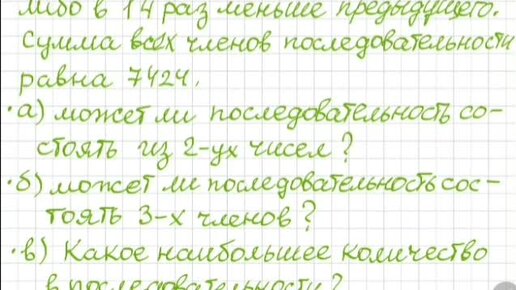 либо в 14 раз меньше предыдущего.
Сумма всех членов последовательности
равна 7424.
•а) может ли последовательность со-
стоять из 2-ух чисел?
•б) может ли последовательность сос-
тоять 3-х членов?
•в) Какое наибольшее количество
в последовательности?